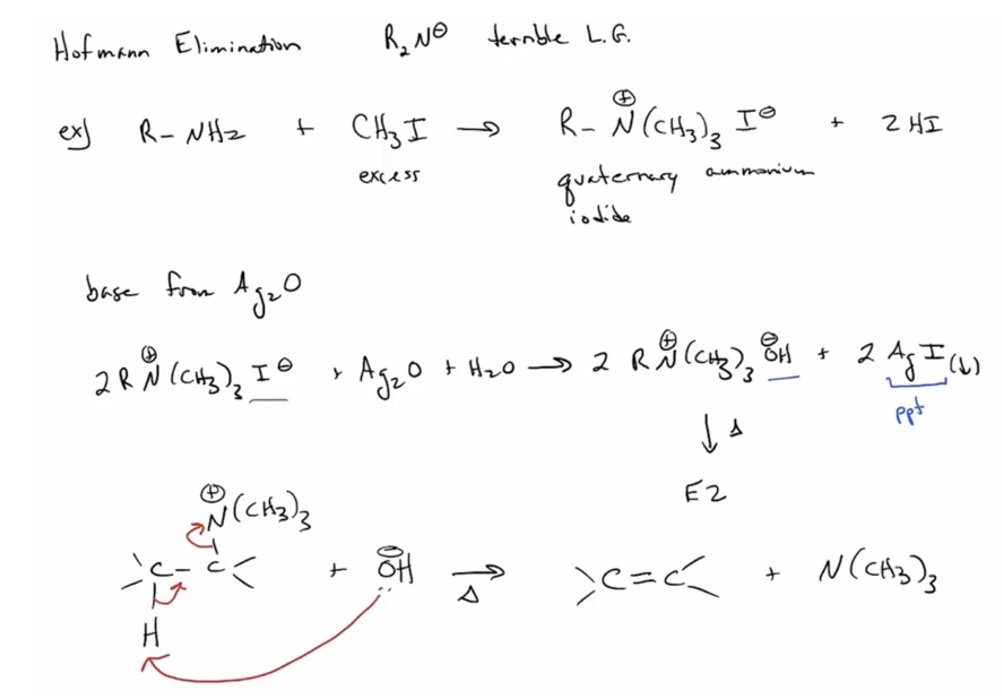 Hofmann Elimination R₂N⊖ terrible L.G.
ex) R-NH₂ + CH₃I → R-N⊕(CH₃)₃ I⊖ + 2HI
excess quaternary ammonium
iodide
base from Ag₂O
2RN⊕(CH₃)₃I⊖ + Ag₂O + H₂O → 2 RN⊕(CH₃)₃ ⊖OH + 2AgI(↓)
ppt
↓Δ
E2
⊕N(CH₃)₃
C-C + ⊖OH →Δ C=C + N(CH₃)₃
H